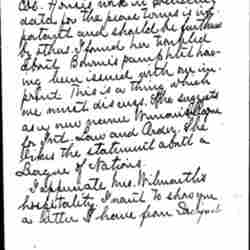 Col. House's work in preparing
data for the peace terms is im-
portant and should be furthered
by others. I found her troubled
about Bourne's pamphlet hav-
ing been issued with our im-
print. This is a thing which
we must discuss. She suggests
as a new name Woman's League
for Int. Law and Order. She
likes the statement about a
League of Nations.
I appreciate Mrs. Wilmarth's
hospitality. I want to show you
a letter I have from